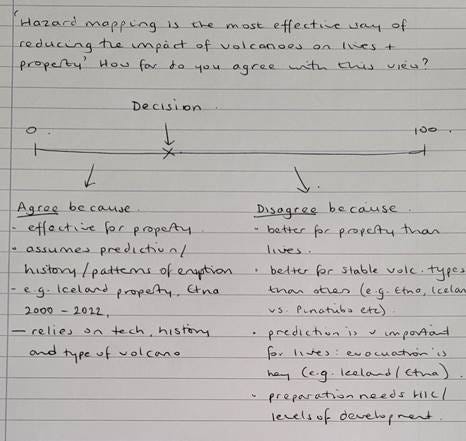 'Hazard mapping is the most effective way of
reducing the impact of volcanoes on lives +
property' How far do you agree with this view?
Decision
0.
100.
Agree because.
- effective for property.
- assumes prediction/
history/patterns of eruption
- e.g. Iceland property, Etna
2000 - 2022,
- relies on tech, history
and type of volcano
Disagree because.
- better for property than
lives.
• better for stable volc. types
than other (e.g. Etna, Icelan
vs. Pinatubo etc).
• prediction is v important
for lives: evacuation is
key (e.g. Iceland/Etna).
• preparation needs HIC/
levels of development.